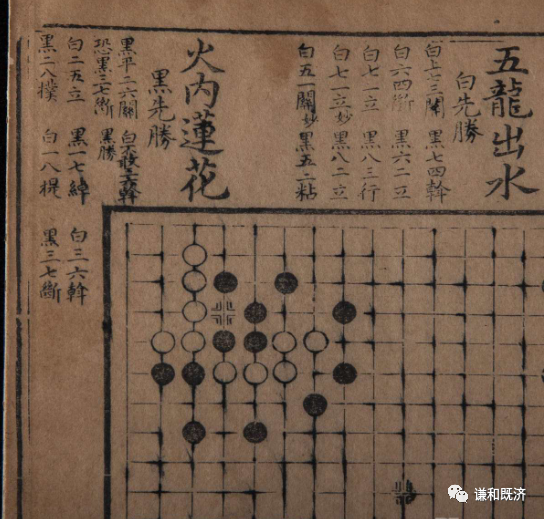 五龍出水
白先勝
白七三關 黑七四斡
白六四斷 黑六二立
白七一立 黑八三行
白七一立妙 黑八二立
白五一關妙 黑五二粘
火内蓮花
黑先勝
黑平二六關 白
恐黑三七斷 黑勝
白二五立 黑一七綽 白三六斡
黑二八撲 白一八提 黑三七斷
谦和既济